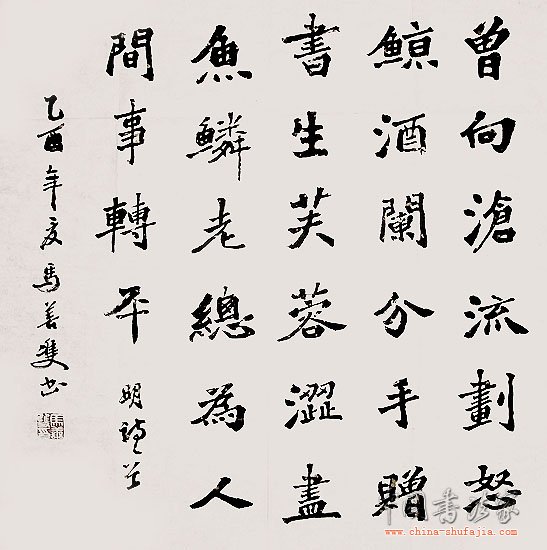 曾向滄流劃怒
鯨酒闌分手贈
書生芙蓉澀盡
魚鱗老總為人
間事轉平 明
乙酉年夏馬善雙书
中国书法家
www.china-shufajia.com